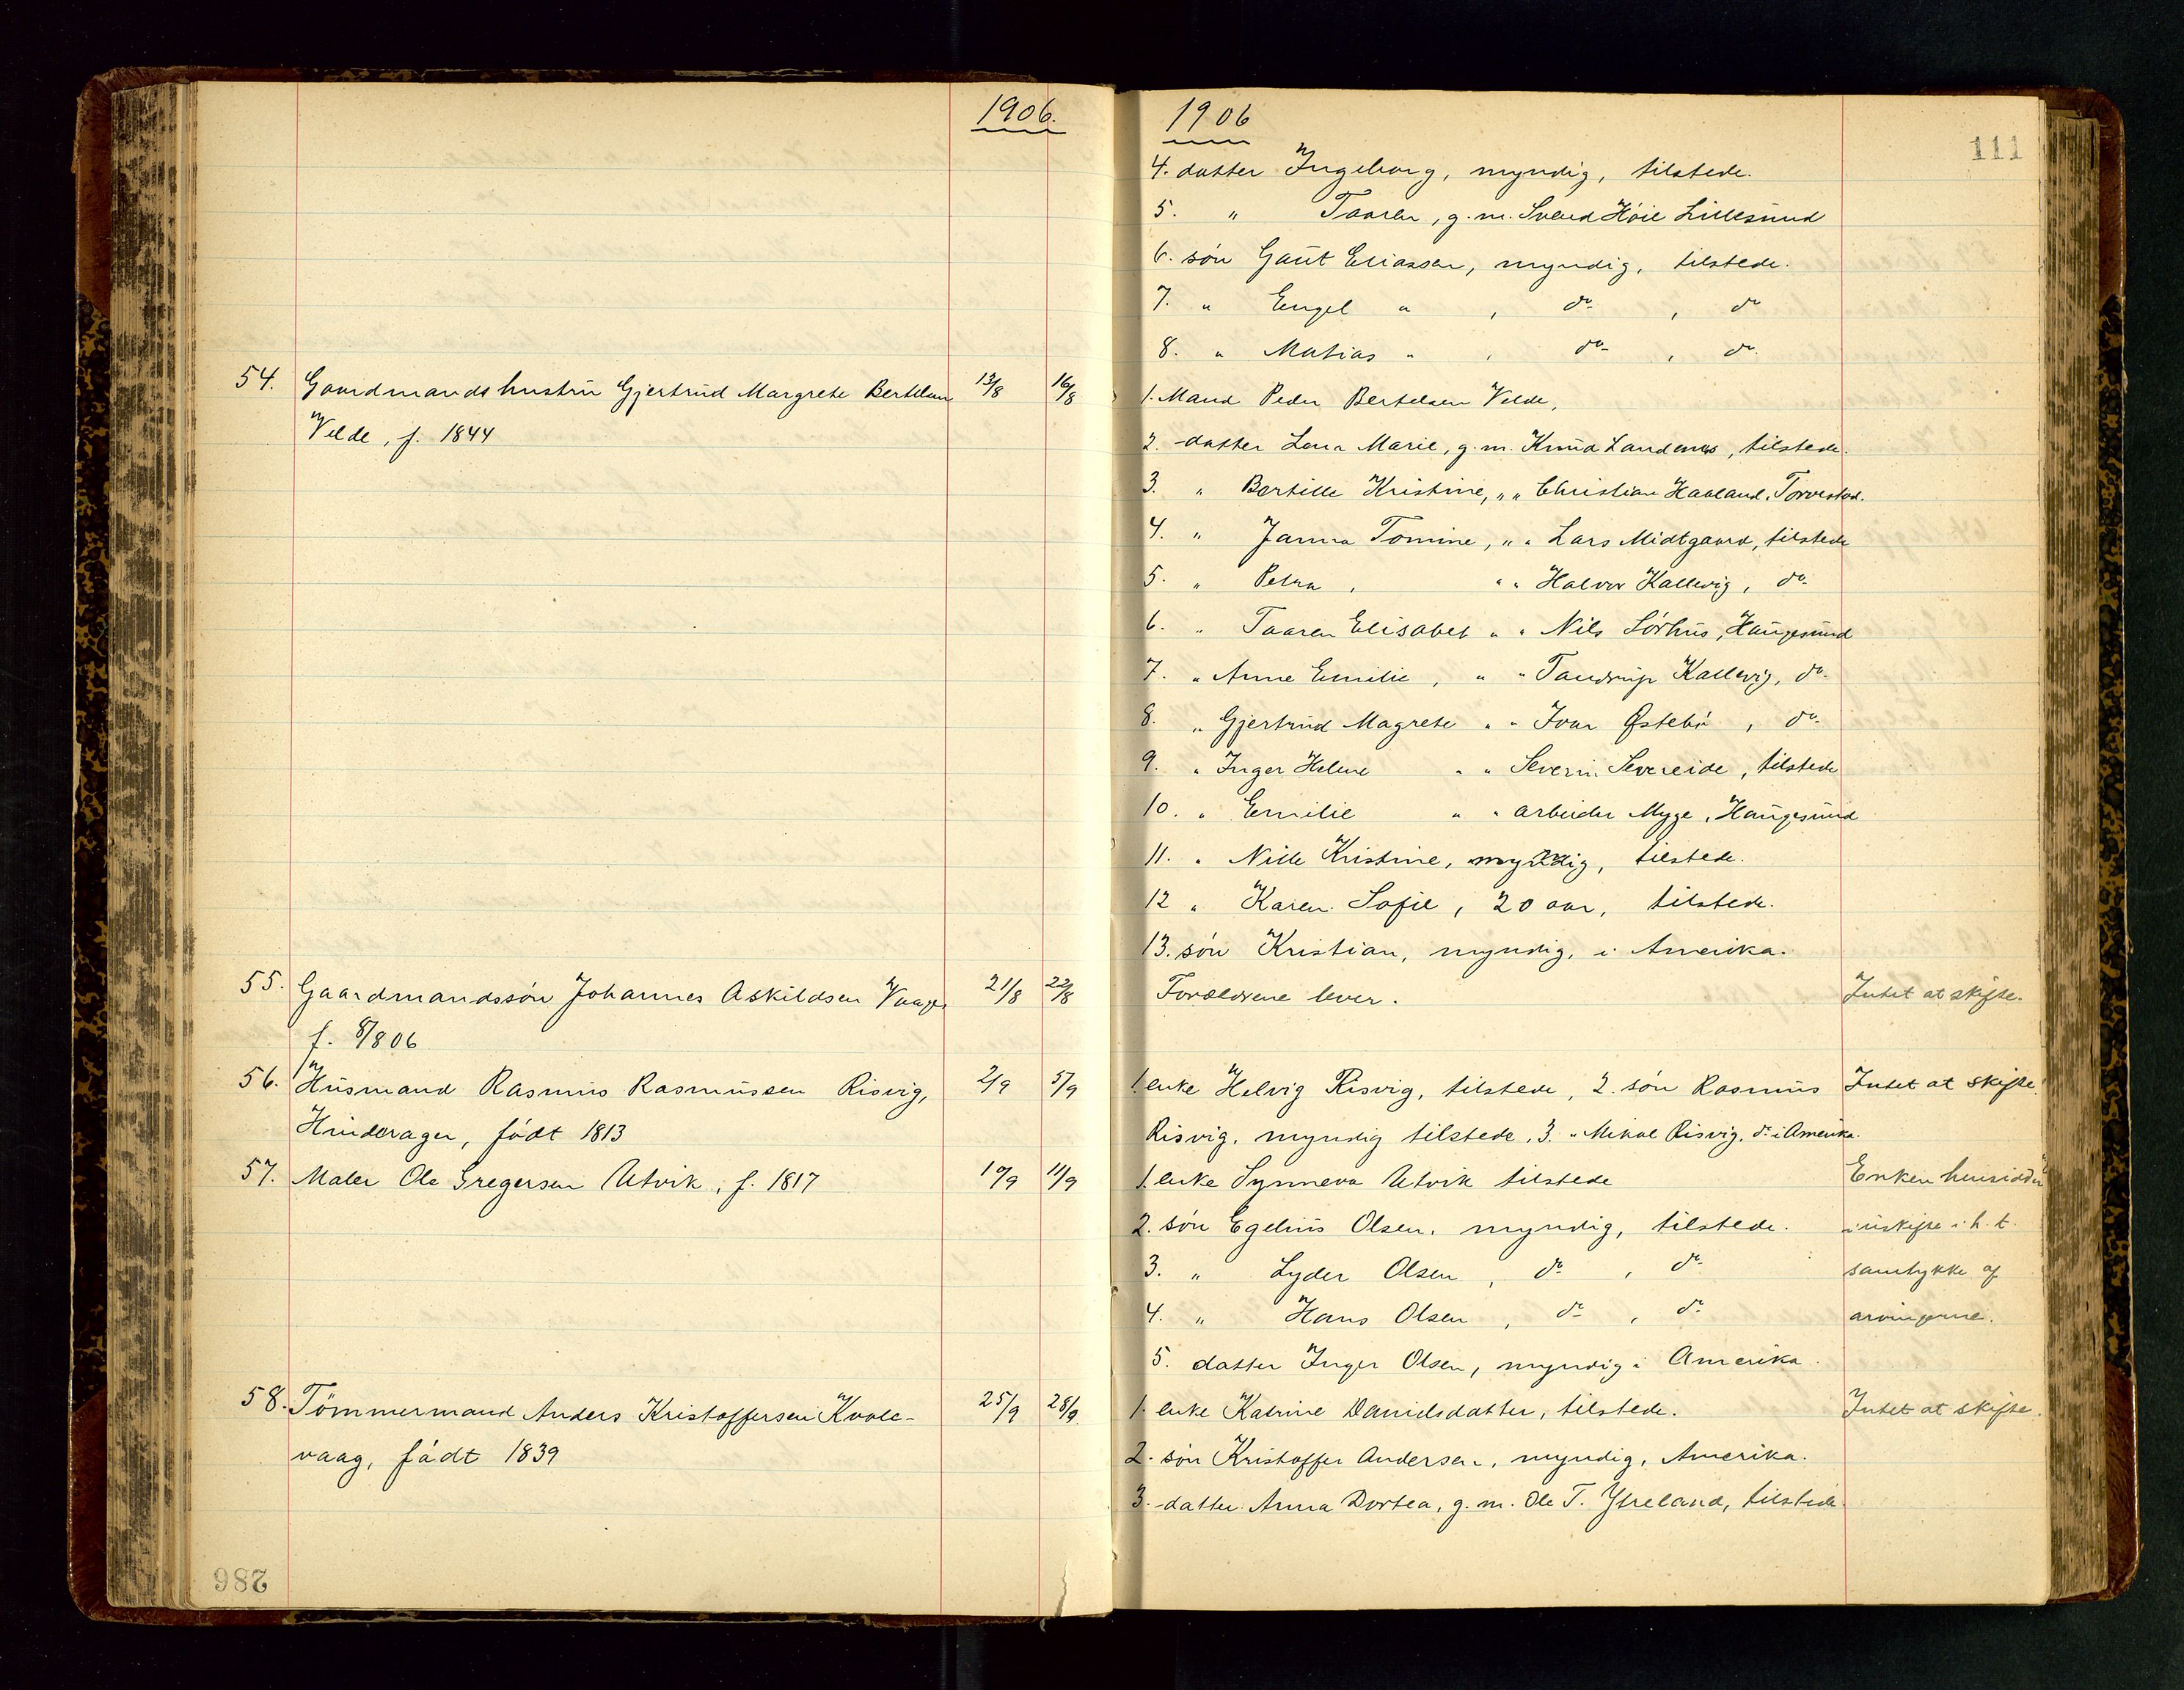 1906.
54. Gaardmandshustru Gjertrud Margrete Bertelsen 13/8 16/8
Velde, f. 1844
55. Gaardmandssön Johannes Askildsen Vaage 21/8 22/8
f. 8/8 06
56. Husmand Rasmus Rasmussen Risvig, 2/9 5/9
Hinderager, födt 1813
57. Maler Ole Gregersen Utvik, f. 1817 10/9 11/9
58. Tömmermand Anders Kristoffersen Kvale- 25/9 28/9
vaag, födt 1839
286
1906
111
4. datter Ingeborg, myndig, tilstede.
5. " Taaren, g. m. Svend Höie Lillesund
6. sön Gaut Eliassen, myndig, tilstede.
7. " Engel " , do , do
8. " Matias " , do , do
1. Mand Peder Bertelsen Velde,
2. datter Lena Marie, g. m. Knud Landenes, tilstede.
3. " Bertille Kristine, " " Christian Haaland, Torvestad.
4. " Janna Tomine, " " Lars Midtgaard, tilstede
5. " Petra , " " Halvor Kallevig, do
6. " Taaren Elisabet " " Nils Sörhus, Haugesund
7. " Anne Emilie, " " Tandrup Kallevig, do
8. " Gjertrud Magrete " " Ivar Östebö , do
9. " Inger Helene " " Severin Severeide, tilstede
10. " Emilie " " arbeider Myge, Haugesund
11. " Nille Kristine, myndig, tilstede.
12 " Karen Sofie, 20 aar, tilstede.
13. sön Kristian, myndig, i Amerika.
Forældrene lever. Intet at skifte.
1. enke Helvig Risvig, tilstede, 2. sön Rasmus Intet at skifte.
Risvig, myndig tilstede, 3. " Mikal Risvig, do i Amerika.
1. enke Synneva Utvik tilstede Enken hensidder
2. sön Egelius Olsen, myndig, tilstede. i uskifte i h. t.
3. " Lyder Olsen , do , do samtykke af
4. " Hans Olsen , do , do arvingerne.
5. datter Inger Olsen, myndig i Amerika.
1. enke Katrine Danielsdatter, tilstede. Intet at skifte.
2. sön Kristoffer Andersen, myndig, Amerika.
3. datter Anna Dortea, g. m. Ole T. Ytreland, tilstede